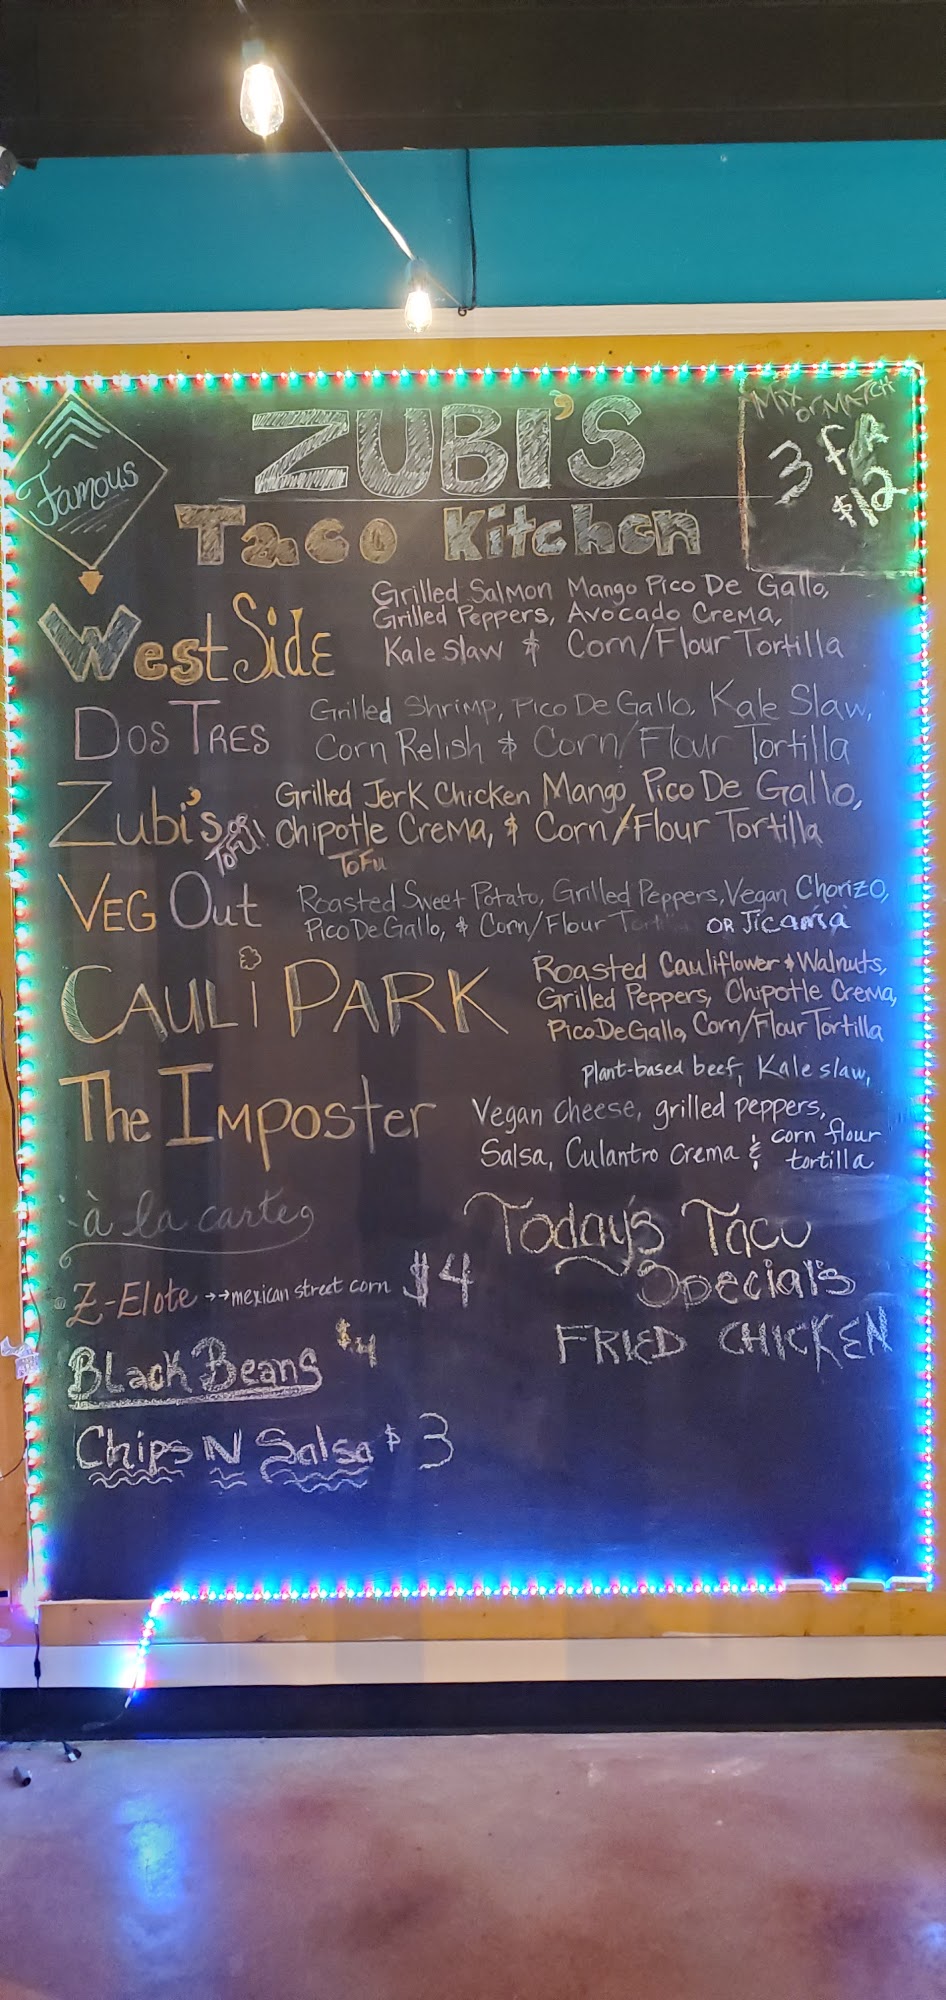 Famous
ZUBI'S
Taco Kitchen
Mix
or MATCH
3 for
$12
West Side
Grilled Salmon Mango Pico De Gallo,
Grilled Peppers, Avocado Crema,
Kale Slaw & Corn/Flour Tortilla
Dos Tres
Grilled Shrimp, Pico De Gallo, Kale Slaw,
Corn Relish & Corn/Flour Tortilla
Zubi's
or
Tofu!
Grilled Jerk Chicken Mango Pico De Gallo,
Chipotle Crema, & Corn/Flour Tortilla
Tofu
Veg Out
Roasted Sweet Potato, Grilled Peppers, Vegan Chorizo,
Pico De Gallo, & Corn/Flour Tortilla OR Jicama
Cauli Park
Roasted Cauliflower & Walnuts,
Grilled Peppers, Chipotle Crema,
Pico De Gallo, Corn/Flour Tortilla
The Imposter
plant-based beef, Kale slaw,
Vegan cheese, grilled peppers,
Salsa, Culantro crema & corn flour
tortilla
à la carte
Z-Elote →→ mexican street corn $4
Black Beans $4
Chips N Salsa $3
Today's Taco
Special's
FRIED CHICKEN